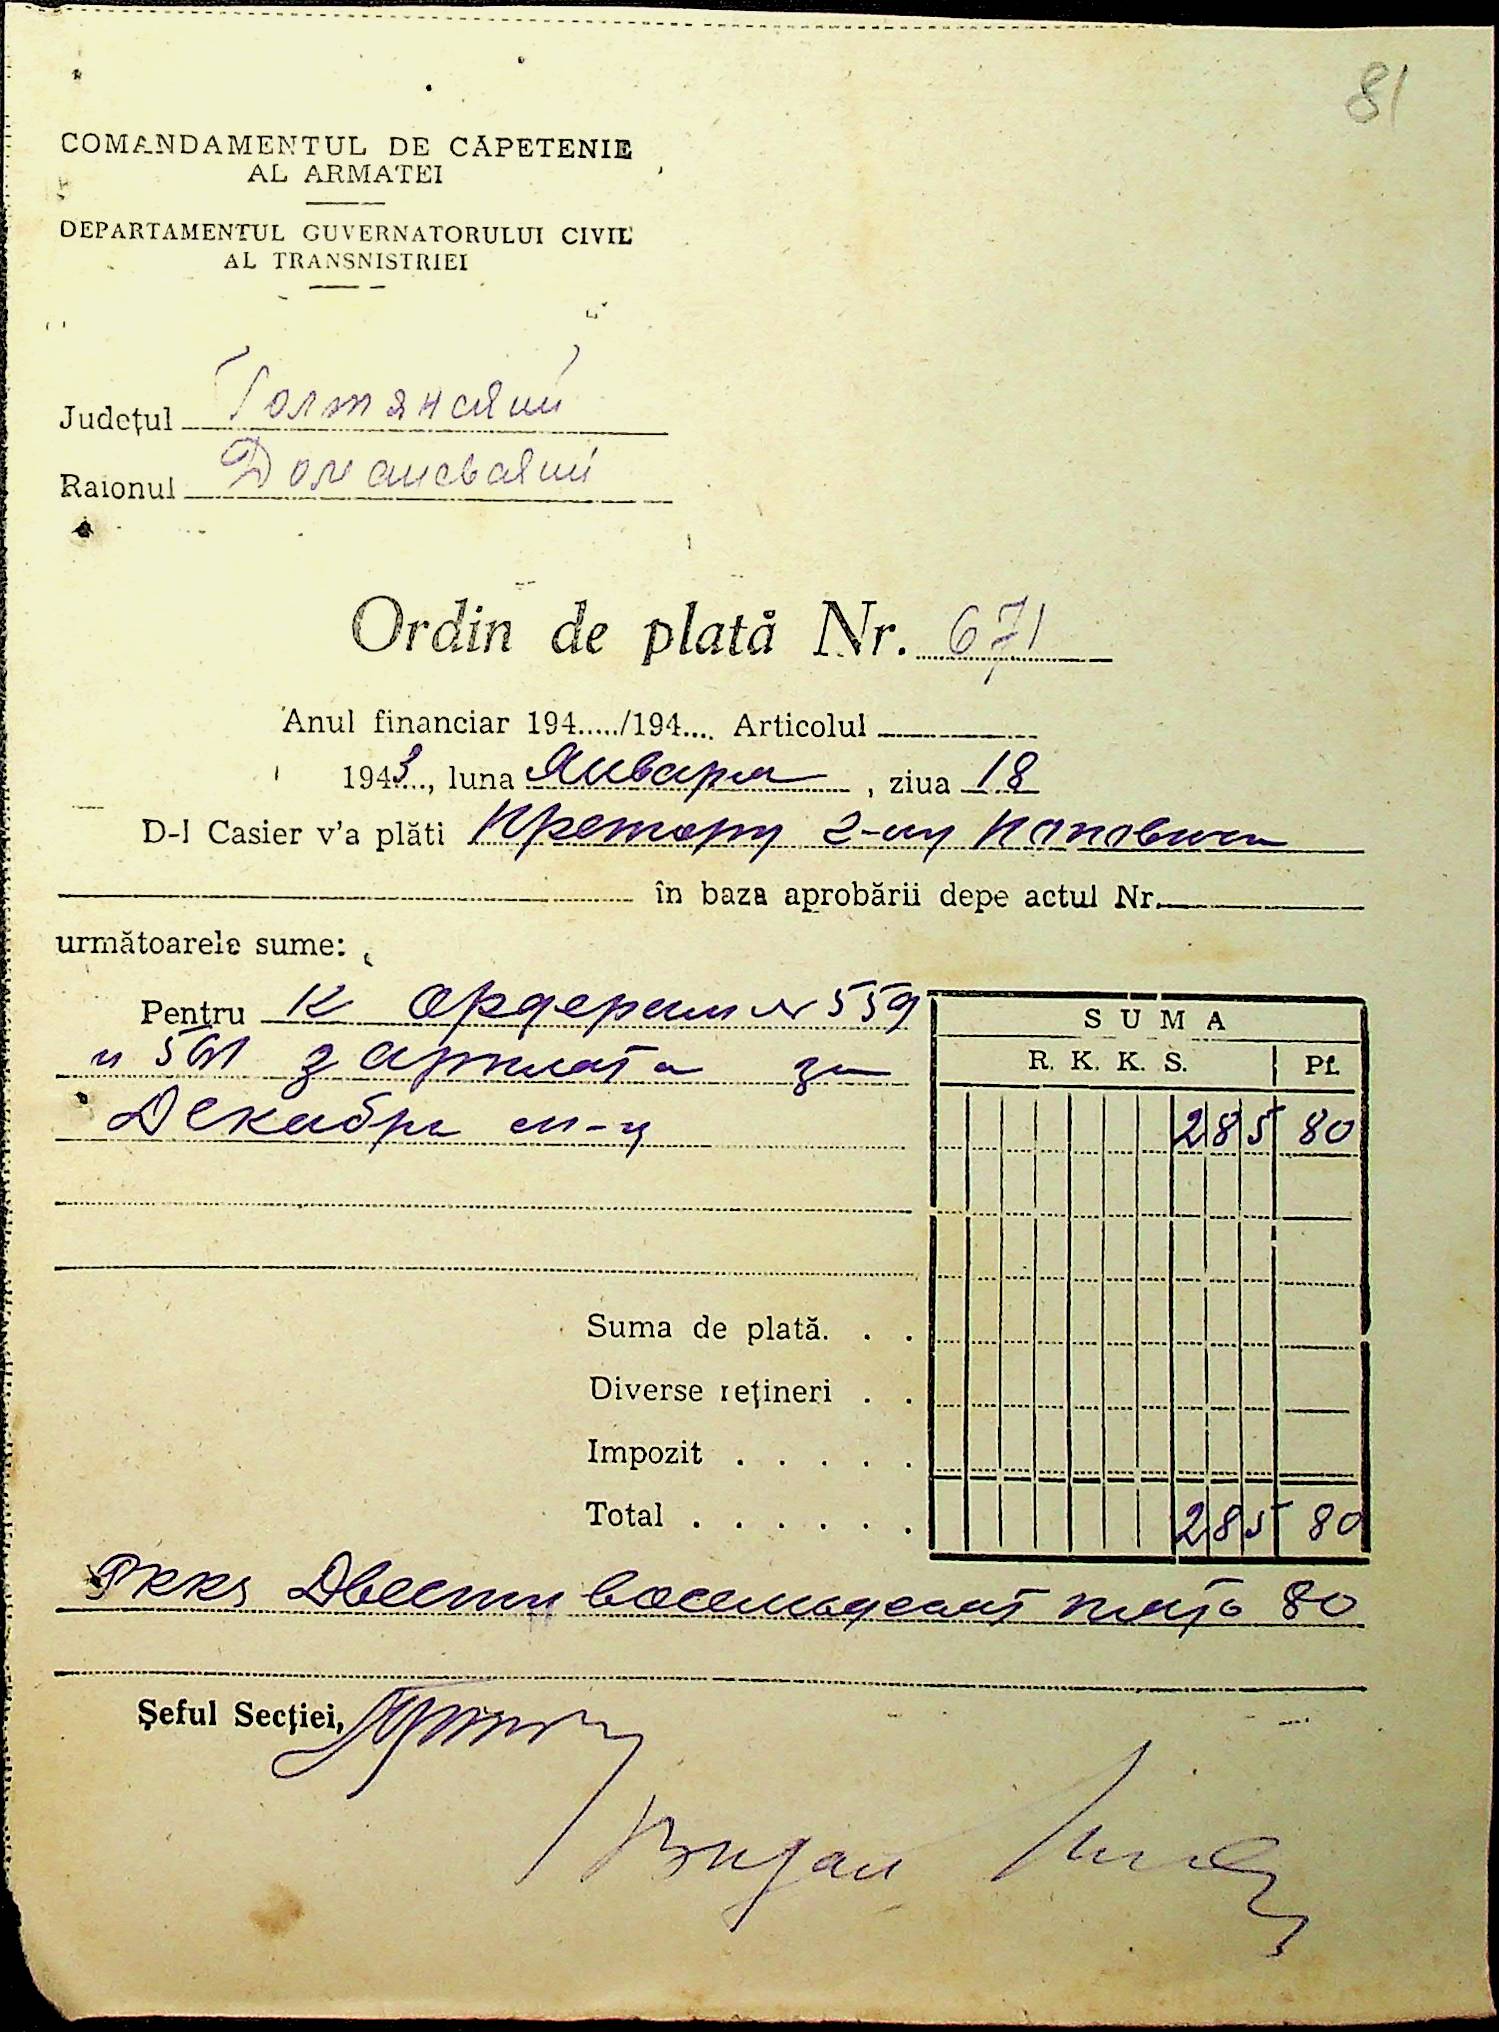 81
COMANDAMENTUL DE CAPETENIE
AL ARMATEI
DEPARTAMENTUL GUVERNATORULUI CIVIL
AL TRANSNISTRIEI
Județul Голтянский
Raionul Доманевский
Ordin de plată Nr. 671
Anul financiar 194...../194.... Articolul
1943..., luna Января, ziua 18
D-l Casier v'a plăti Претору г-ну Поповичи
în baza aprobării depe actul Nr.
următoarele sume:
Pentru К ордерам № 559
и 561 зарплата за
Декабрь м-ц
SUMA
R. K. K. S. Pf.
285 80
Suma de plată. . .
Diverse rețineri . .
Impozit . . . . .
Total . . . . . . 285 80
РККs Двести восемьдесят пять 80
Șeful Secției,